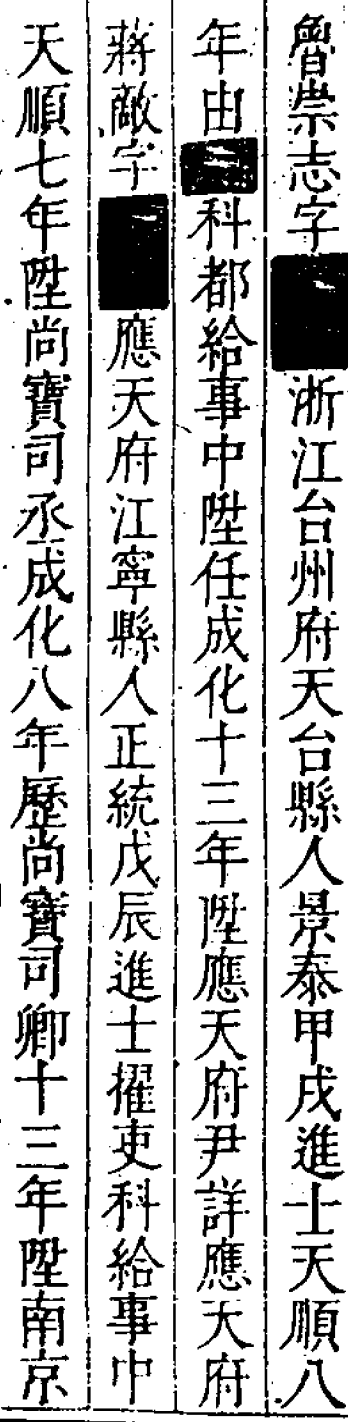 魯崇志字浙江台州府天台縣人景泰甲戌進士天順八
年由科都給事中陞任成化十三年陞應天府尹詳應天府
蔣敵字應天府江寧縣人正統戊辰進士擢吏科給事中
天順七年陞尚寶司丞成化八年歷尚寶司卿十三年陞南京